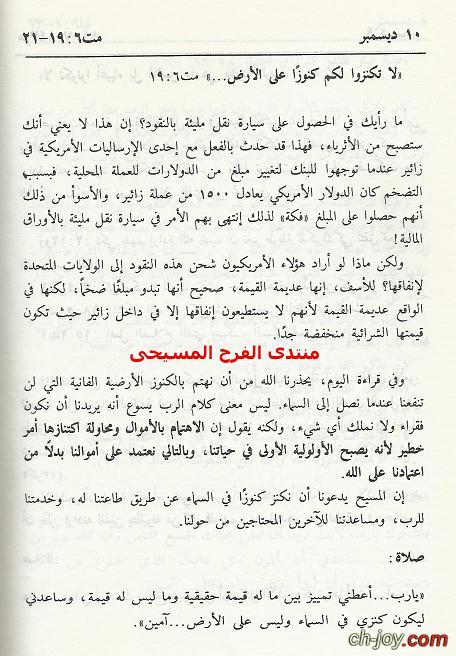 ١٠ ديسمبر
مت٦:١٩-٢١
«لا تكنزوا لكم كنوزًا على الأرض...» مت٦:١٩
ما رأيك في الحصول على سيارة نقل مليئة بالنقود؟ إن هذا لا يعني أنك
ستصبح من الأثرياء، فهذا قد حدث بالفعل مع إحدى الإرساليات الأمريكية في
زائير عندما توجهوا للبنك لتغيير مبلغ من الدولارات للعملة المحلية، فبسبب
التضخم كان الدولار الأمريكي يعادل ١٥٠٠ من عملة زائير، والأسوأ من ذلك
أنهم حصلوا على المبلغ «فكة» لذلك إنتهى بهم الأمر في سيارة نقل مليئة بالأوراق
المالية!
ولكن ماذا لو أراد هؤلاء الأمريكيون شحن هذه النقود إلى الولايات المتحدة
لإنفاقها؟ للأسف، إنها عديمة القيمة، صحيح أنها تبدو مبلغًا ضخماً، لكنها في
الواقع عديمة القيمة لأنهم لا يستطيعون إنفاقها إلا في داخل زائير حيث تكون
قيمتها الشرائية منخفضة جدًا.
منتدى الفرح المسيحى
وفي قراءة اليوم، يحذرنا الله من أن نهتم بالكنوز الأرضية الفانية التي لن
تنفعنا عندما نصل إلى السماء. ليس معنى كلام الرب يسوع أنه يريدنا أن نكون
فقراء ولا نملك أي شيء، ولكنه يقول إن الاهتمام بالأموال ومحاولة اكتنازها أمر
خطير لأنه يصبح الأولوية الأولى في حياتنا، وبالتالي نعتمد على أموالنا بدلًا من
اعتمادنا على الله.
إن المسيح يدعونا أن نكنز كنوزًا في السماء عن طريق طاعتنا له، وخدمتنا
للرب، ومساعدتنا للآخرين المحتاجين من حولنا.
صلاة:
«يارب...أعطني تمييز بين ما له قيمة حقيقية وما ليس له قيمة، وساعدني
ليكون كنزي في السماء وليس على الأرض...آمين».
ch-joy.com